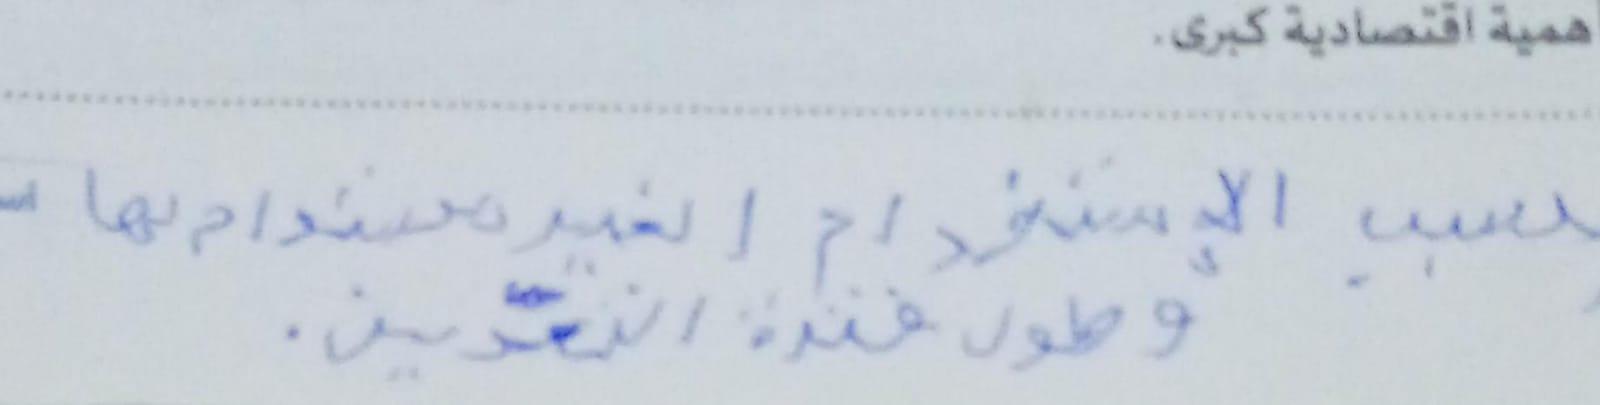 همية اقتصادية كبرى.
بسبب الإستخدام الغير مستدام لها
وطول فترة التعدين.